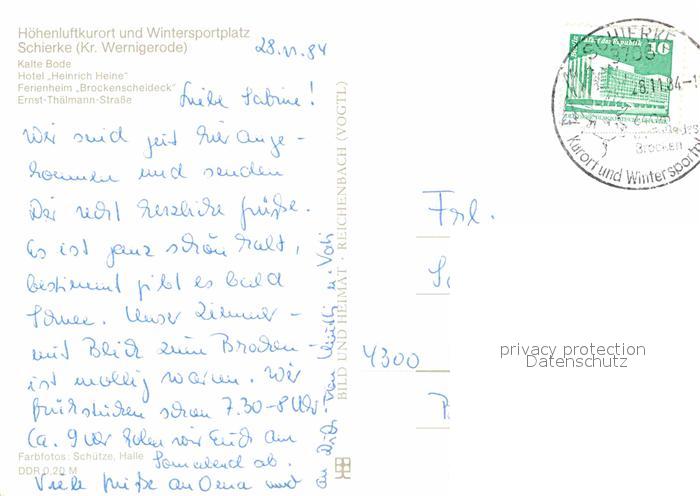 Höhenluftkurort und Wintersportplatz
Schierke (Kr. Wernigerode)
Kalte Bode
Hotel „Heinrich Heine“
Ferienheim „Brockenscheideck“
Ernst-Thälmann-Straße
28.11.84
Liebe Sabine!
Wir sind jetzt hier ange-
kommen und senden
Dir recht herzliche Grüße.
Es ist ganz schön kalt,
bestimmt gibt es bald
Schnee. Unser Zimmer -
mit Blick zum Brocken -
ist mollig warm. Wir
frühstücken schon 7.30-8 Uhr!
Ca. 9 Uhr holen wir Euch am
Sonnabend ab.
Viele Grüße an Oma und
an Dich von Mutti u. Vati
Farbfotos: Schütze, Halle
DDR 0,20 M
BILD UND HEIMAT · REICHENBACH (VOGTL)
Frl.
4300
SCHIERKE
3705
28.11.84-1
Brocken
Kurort und Wintersportpl
10
privacy protection
Datenschutz